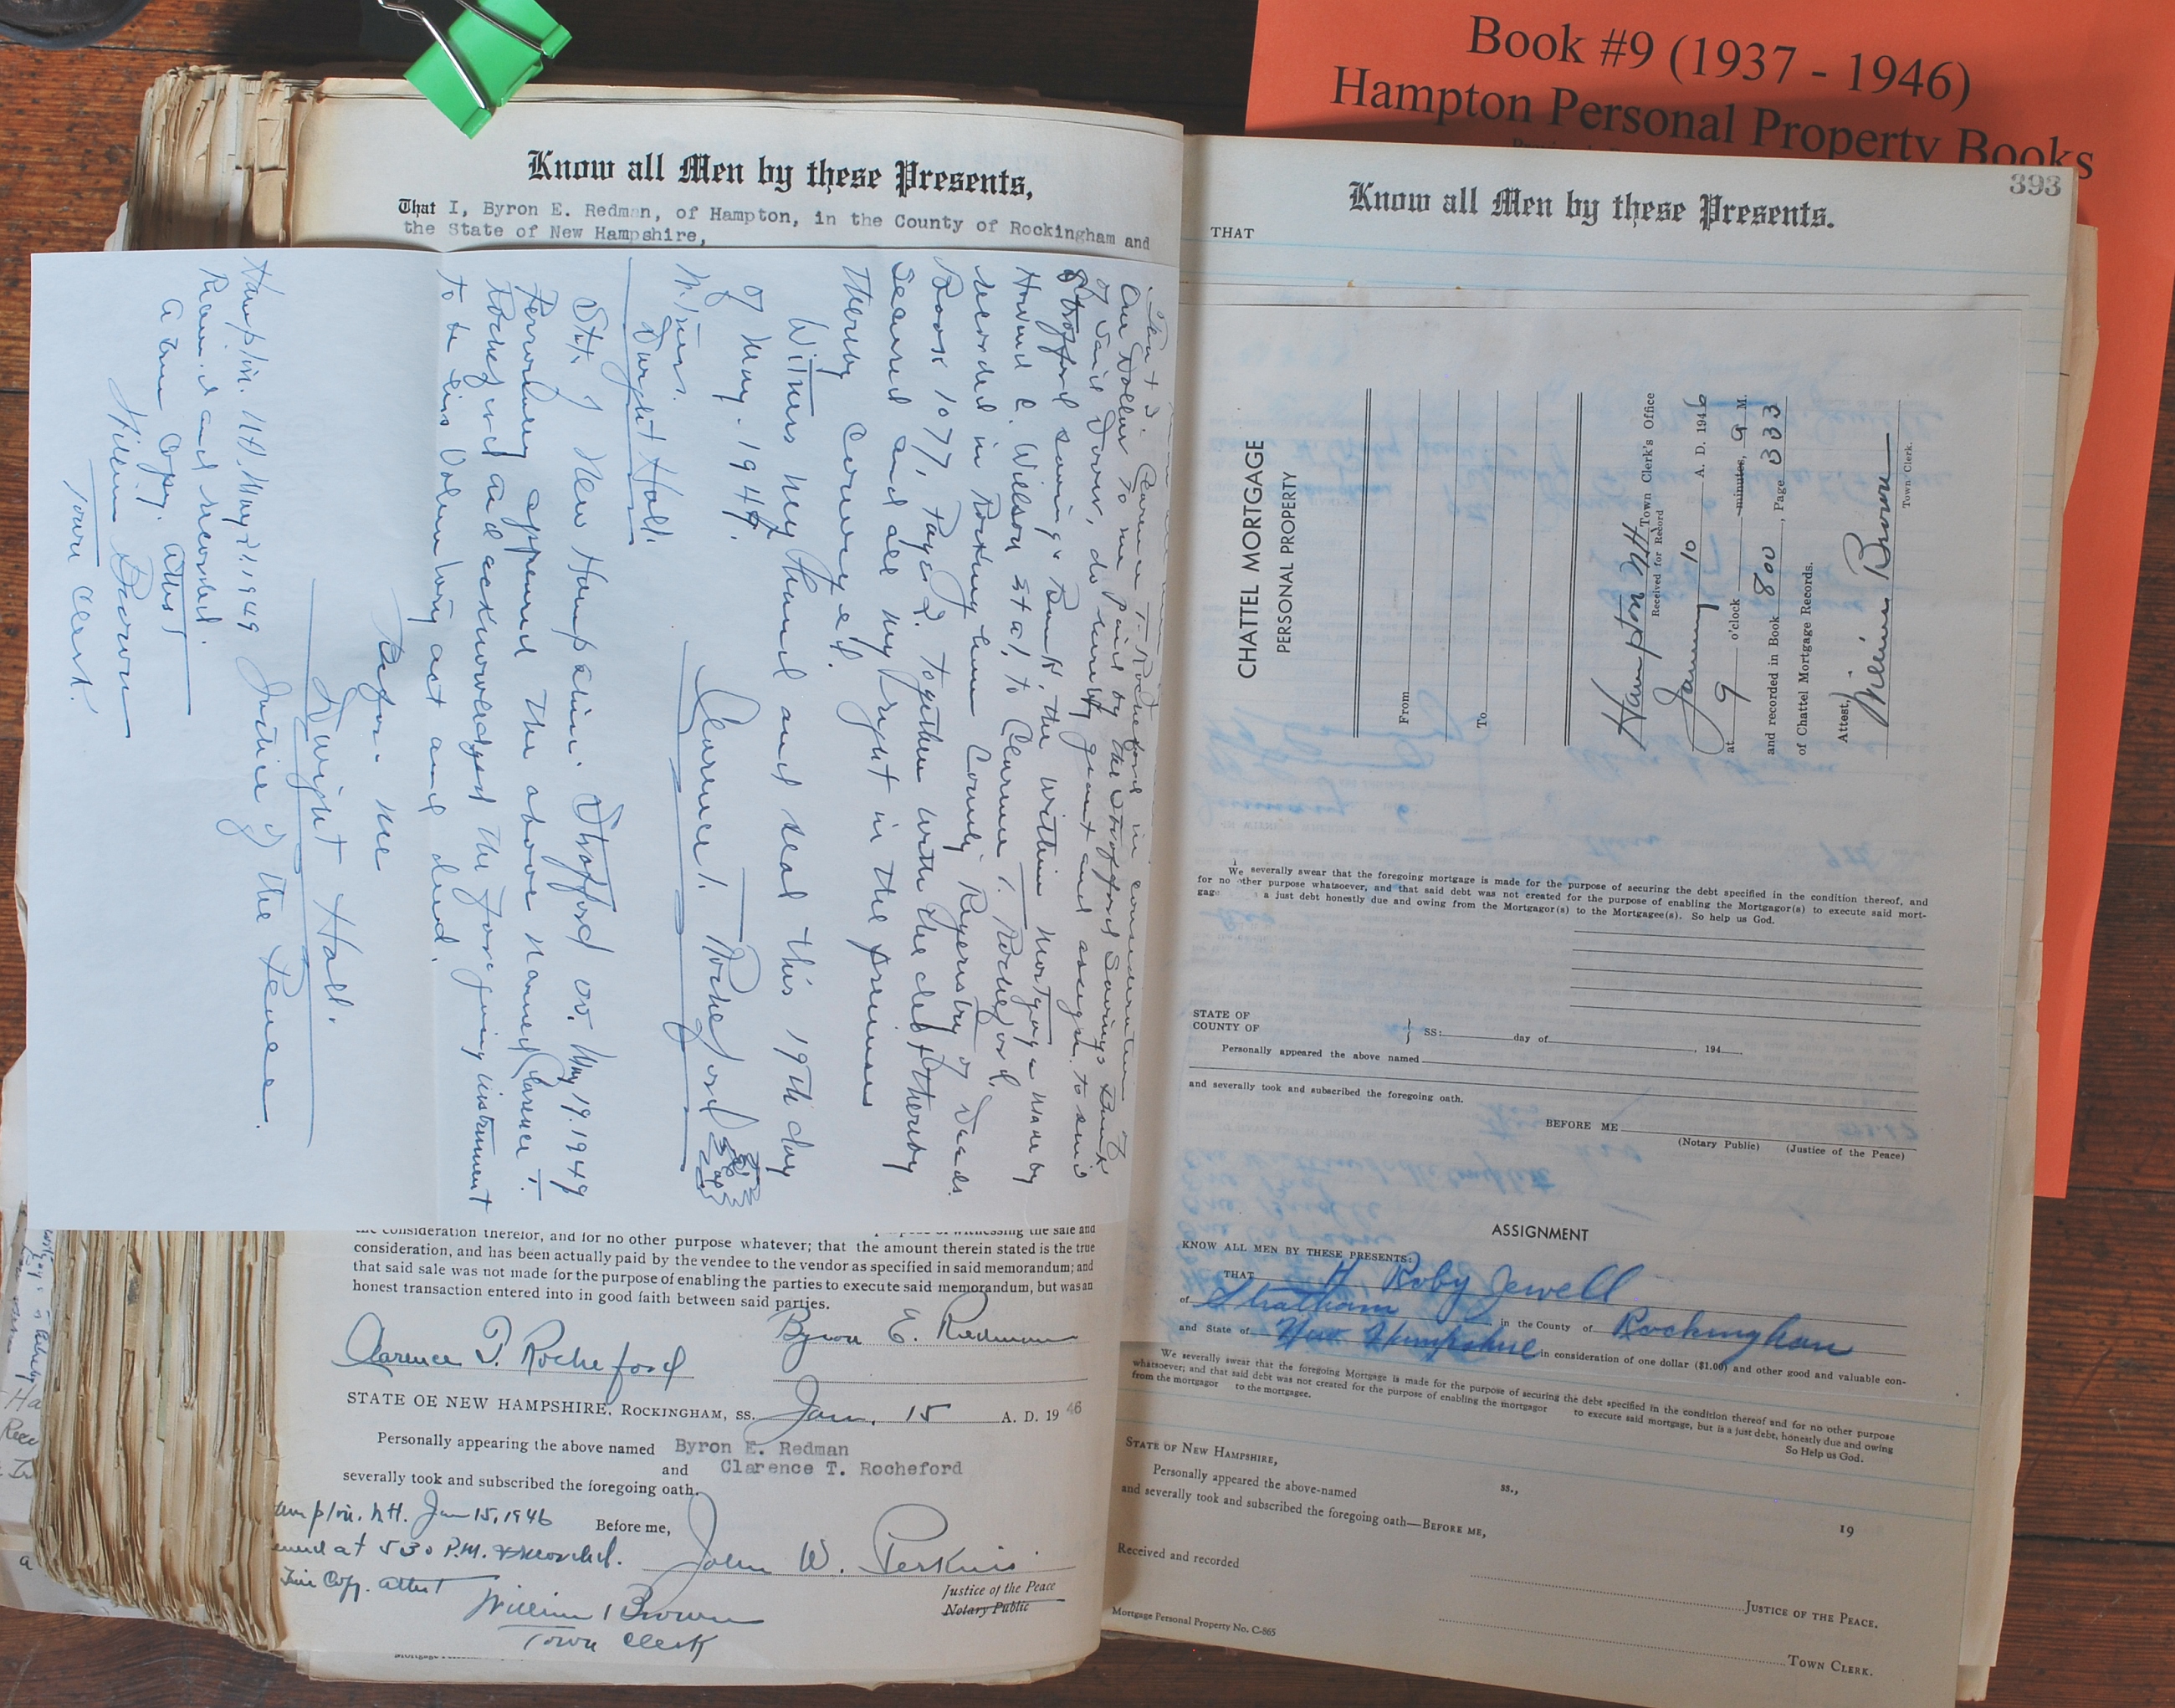 Book #9 (1937 - 1946)
Hampton Personal Property Books
Know all Men by these Presents,
That I, Byron E. Redman, of Hampton, in the County of Rockingham and
the State of New Hampshire,
That I, Clarence T. Rocheford in consideration
One Dollar to me paid by the Strafford Savings Bank
of said Dover, do hereby grant and assign to said
Strafford Savings Bank, the within mortgage made by
Howard C. Willson et al, to Clarence T. Rocheford.
recorded in Rockingham County Registry of Deeds.
Book 1077, Page 2. together with the debt thereby
secured and all my right in the premises
thereby conveyed.
Witness my hand and seal this 19th day
of May. 1949.
Witness.
Dwight Hall.
Clarence T. Rocheford
State of New Hampshire Strafford ss. May 19. 1949
Personally appeared the above named Clarence T.
Rocheford and acknowledged the foregoing instrument
to be his voluntary act and deed.
Before me
Dwight Hall.
Justice of the Peace.
Hampton. N.H. May 21. 1949
Received and recorded.
a true copy. attest
William Brown
Town Clerk.
the consideration therefor, and for no other purpose whatever; that the amount therein stated is the true
consideration, and has been actually paid by the vendee to the vendor as specified in said memorandum; and
that said sale was not made for the purpose of enabling the parties to execute said memorandum, but was an
honest transaction entered into in good faith between said parties.
Byron E. Redman
Clarence T. Rocheford
STATE OF NEW HAMPSHIRE, ROCKINGHAM, SS. Jan. 15 A. D. 19 46
Personally appearing the above named Byron E. Redman
and Clarence T. Rocheford
severally took and subscribed the foregoing oath.
Hampton. N.H. Jan 15, 1946 Before me,
at 530 P.M. & recorded. John W. Perkins
True Copy. attest
Justice of the Peace
Notary Public
William Brown
Town Clerk
393
Know all Men by these Presents.
THAT
CHATTEL MORTGAGE
PERSONAL PROPERTY
From
To
Hampton NH Town Clerk's Office
Received for Record
January 10 A. D. 1946
at 9 o'clock minutes, 9 M.
and recorded in Book 800, Page 333
of Chattel Mortgage Records.
Attest, William Brown
Town Clerk.
We severally swear that the foregoing mortgage is made for the purpose of securing the debt specified in the condition thereof, and
for no other purpose whatsoever, and that said debt was not created for the purpose of enabling the Mortgagor(s) to execute said mort-
gage a just debt honestly due and owing from the Mortgagor(s) to the Mortgagee(s). So help us God.
STATE OF
COUNTY OF } SS: day of , 194
Personally appeared the above named
and severally took and subscribed the foregoing oath.
BEFORE ME
(Notary Public) (Justice of the Peace)
ASSIGNMENT
KNOW ALL MEN BY THESE PRESENTS:
THAT H Roby Jewell
of Stratham in the County of Rockingham
and State of New Hampshire in consideration of one dollar ($1.00) and other good and valuable con-
We severally swear that the foregoing Mortgage is made for the purpose of securing the debt specified in the condition thereof and for no other purpose
whatsoever; and that said debt was not created for the purpose of enabling the mortgagor to execute said mortgage, but is a just debt, honestly due and owing
from the mortgagor to the mortgagee. So Help us God.
STATE OF NEW HAMPSHIRE,
Personally appeared the above-named ss.,
and severally took and subscribed the foregoing oath—BEFORE ME,
19
Received and recorded
JUSTICE OF THE PEACE.
Mortgage Personal Property No. C-865
TOWN CLERK.